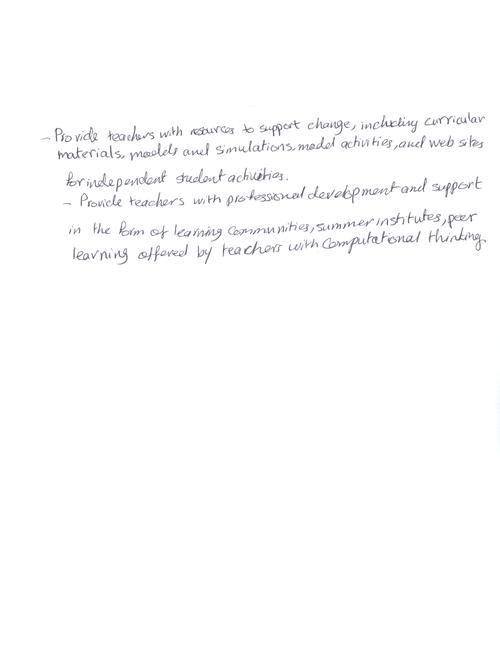 - Provide teachers with resources to support change, including curricular
materials, models and simulations, model activities, and web sites
for independent student activities.
- Provide teachers with professional development and support
in the form of learning communities, summer institutes, peer
learning offered by teachers with computational thinking.